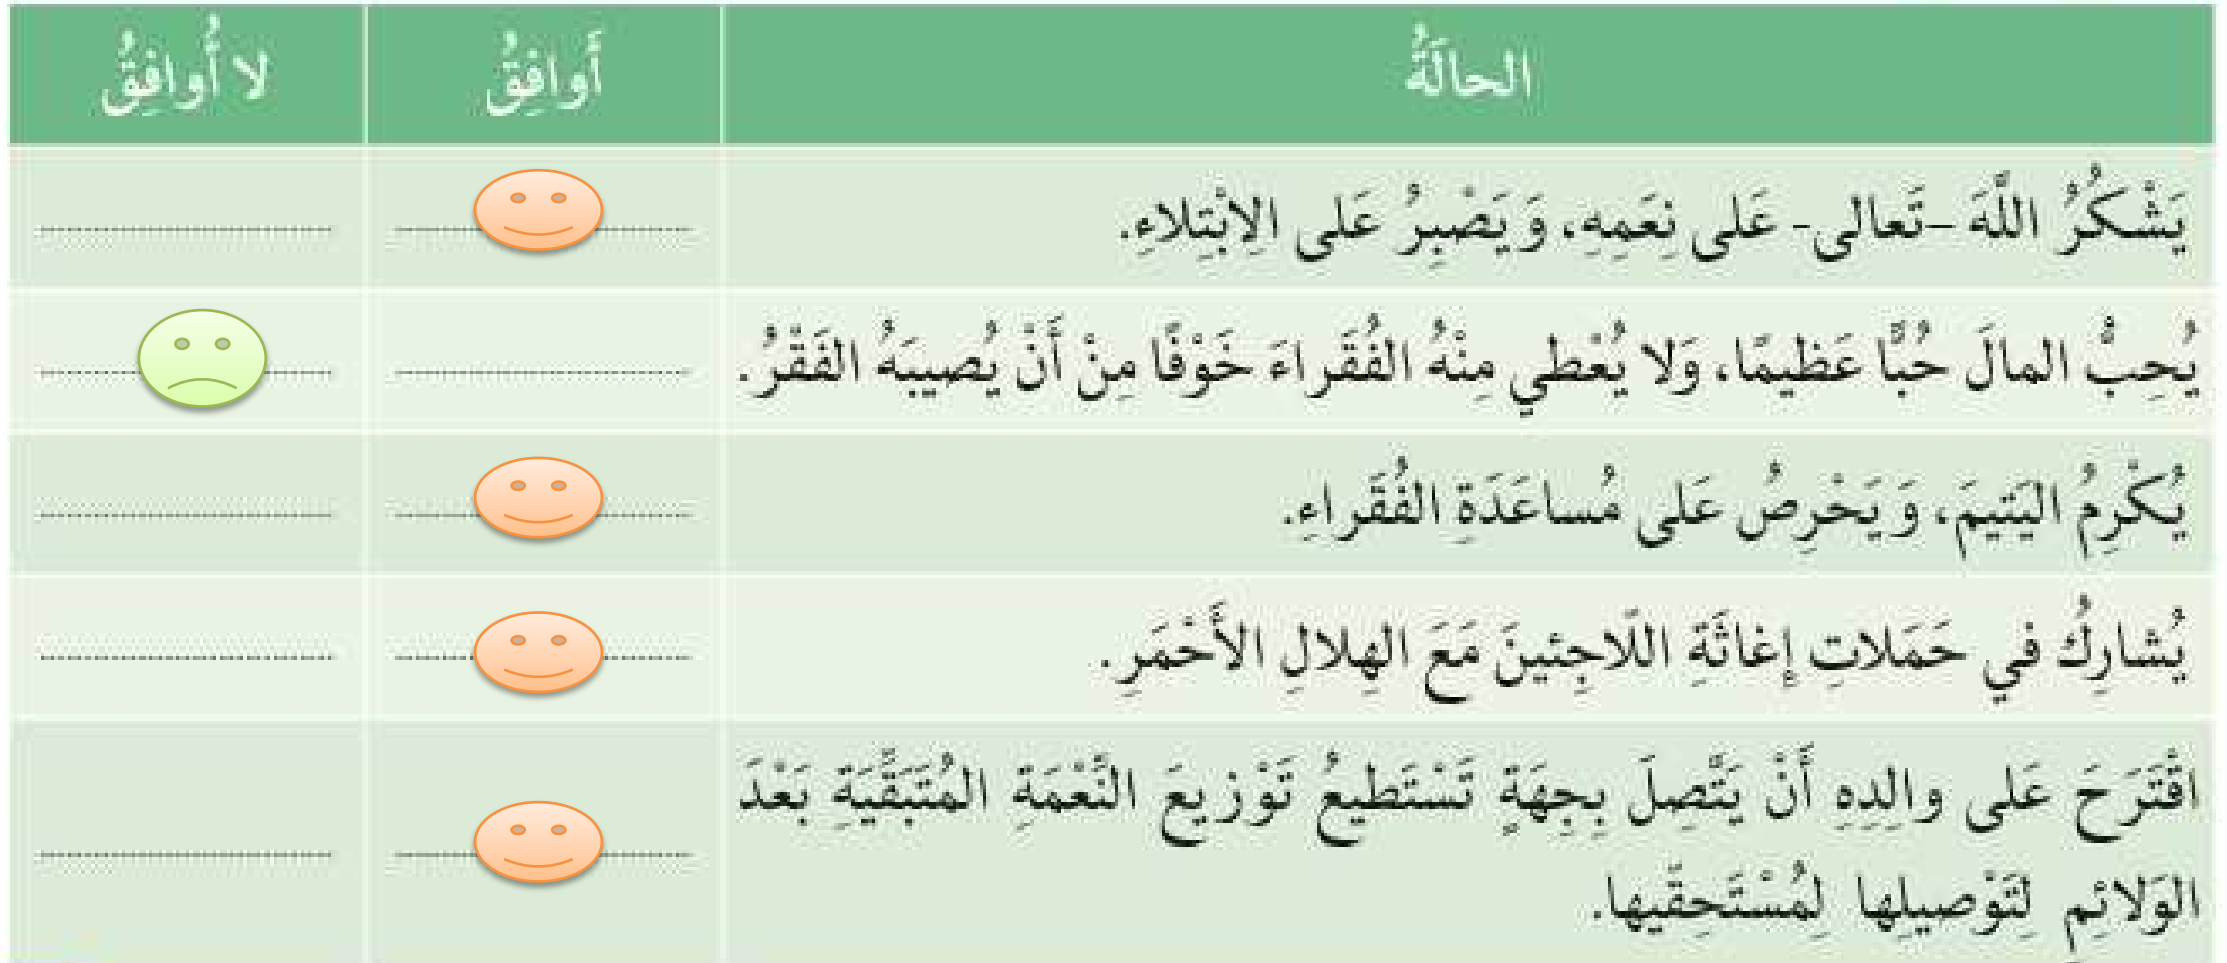 الحالَةُ أُوافِقُ لا أُوافِقُ
يَشْكُرُ اللَّهَ -تَعالى- عَلى نِعَمِهِ، وَيَصْبِرُ عَلى الِابْتِلاءِ.
يُحِبُّ المالَ حُبًّا عَظيمًا، وَلا يُعْطي مِنْهُ الفُقَراءَ خَوْفًا مِنْ أَنْ يُصيبَهُ الفَقْرُ.
يُكْرِمُ اليَتيمَ، وَيَحْرِصُ عَلى مُساعَدَةِ الفُقَراءِ.
يُشارِكُ في حَمَلاتِ إِغاثَةِ اللّاجِئينَ مَعَ الهِلالِ الأَحْمَرِ.
اقْتَرَحَ عَلى والِدِهِ أَنْ يَتَّصِلَ بِجِهَةٍ تَسْتَطيعُ تَوْزيعَ النِّعْمَةِ المُتَبَقِّيَةِ بَعْدَ
الوَلائِمِ لِتَوْصيلِها لِمُسْتَحِقّيها.